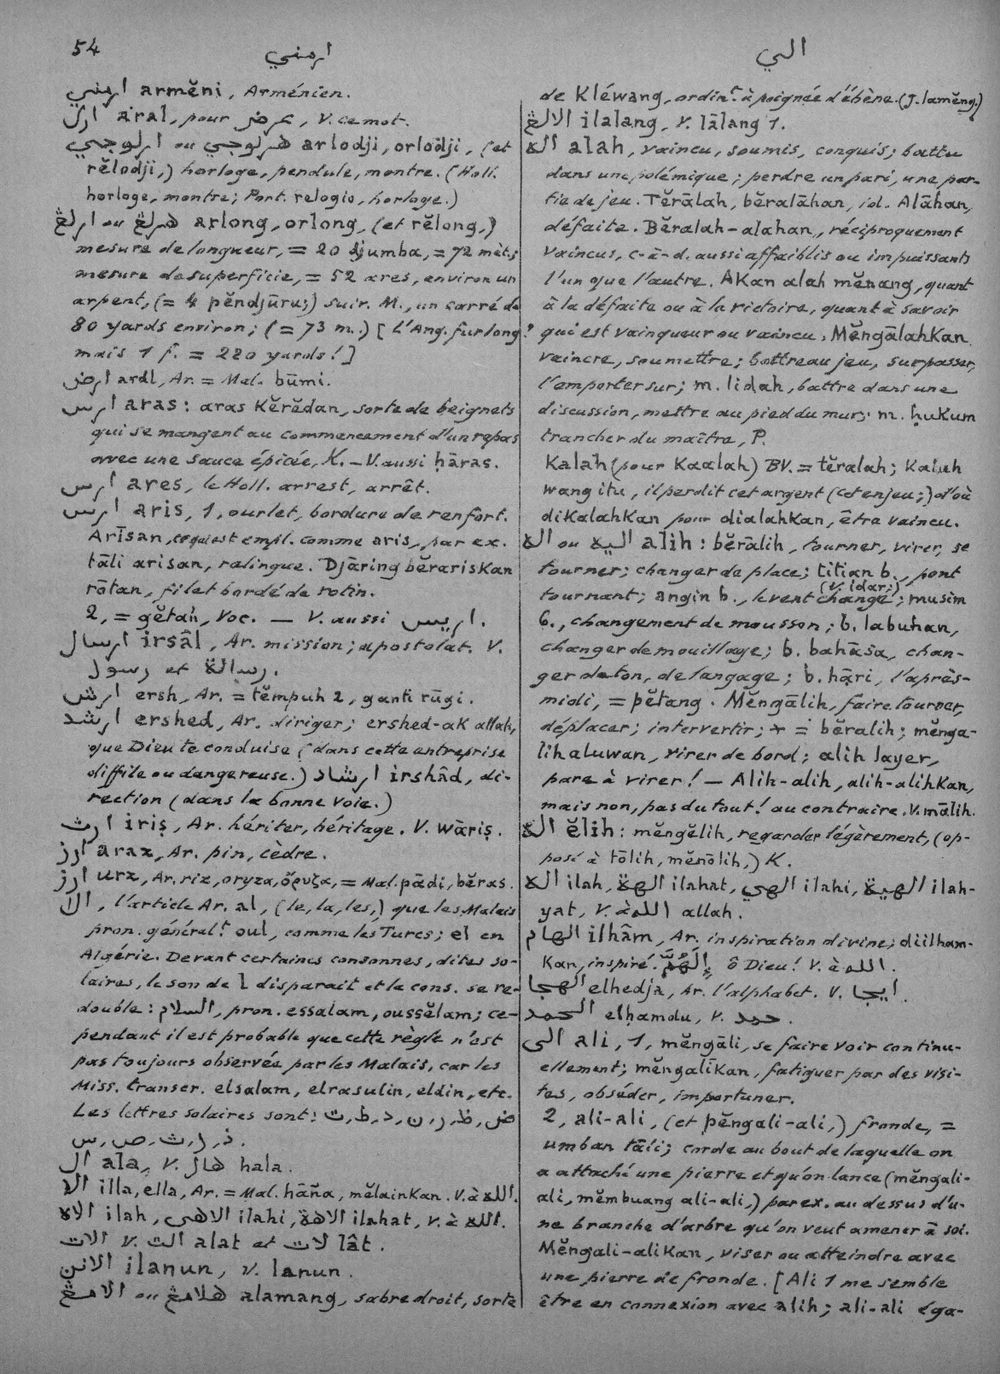 54 ارمني الي
ارمني armĕni, Arménien.
ارل aral, pour عرض, V. ce mot.
ارلوجي ou هرلوجي arlodji, orlodji, (et
rĕlodji,) horloge, pendule, montre. (Holl.
horloge, montre; Port. relogio, horloge.)
ارلڠ ou هرلڠ arlong, orlong, (et rĕlong,)
mesure de longueur, = 20 djumba, = 72 mèt.;
mesure de superficie, = 52 ares, environ un
arpent, (= 4 pĕndjūru;) suiv. M., un carré de
80 yards environ; (= 73 m.) [L'Ang. furlong?
mais 1 f. = 220 yards!]
ارض ardl, Ar. = Mal. būmi.
ارس aras: aras Kĕrĕdan, sorte de beignets
qui se mangent au commencement d'un repas
avec une sauce épicée, K. – V. aussi ḥāras.
ارس ares, le Holl. arrest, arrêt.
ارس aris, 1, ourlet, bordure de renfort.
Arīsan, ce qui est empl. comme aris, par ex.
tāli arisan, ralingue. Djāring bĕrarisKan
rōtan, filet bordé de rotin.
2, = gĕtah, Voc. — V. aussi اريس.
ارسال irsâl, Ar. mission; apostolat. V.
رسول et رسالة.
ارش ersh, Ar. = tĕmpuh 2, ganti rūgi.
ارشد ershed, Ar. diriger; ershed-ak allah,
que Dieu te conduise (dans cette entreprise
diffile ou dangereuse.) ارشاد irshâd, di-
rection (dans la bonne voie.)
ارث iriṣ, Ar. hériter, héritage. V. wāriṣ.
ارز araz, Ar. pin, cèdre.
ارز urz, Ar. riz, oryza, ὄρυζα, = Mal. pādi, bĕras.
الا, l'article Ar. al, (le, la, les,) que les Malais
pron. générali.t oul, comme les Turcs; el en
Algérie. Devant certaines consonnes, dites so-
laires, le son de l disparait et la cons. se re-
double: السلام, pron. essalam, oussĕlam; ce-
pendant il est probable que cette règle n'est
pas toujours observée par les Malais, car les
Miss. transcr. elsalam, elrasulin, eldin, etc.
Les lettres solaires sont: ض, ظ, ر, ن, د, ط, ت
ذ, ز, ث, ص, س.
ال ala, V. هال hala.
الا illa, ella, Ar. = Mal. hāña, mĕlainKan. V. à الله.
الاه ilah, الاهى ilahi, الاهة ilahat, V. à الله.
الات V. الت alat et لات lât.
الانن ilanun, V. lanun.
الامڠ ou هلامڠ alamang, sabre droit, sorte
de Kléwang, ordin.t à poignée d'ébène. (J. lamĕng.)
الالڠ ilalang, V. lālang 1.
اله alah, vaincu, soumis, conquis; battu
dans une polémique; perdre un pari, une par-
tie de jeu. Tĕrālah, bĕralāhan, id. Alāhan,
défaite. Bĕralah-alahan, réciproquement
vaincus, c-à-d. aussi affaiblis ou impuissants
l'un que l'autre. AKan alah mĕnang, quant
à la défaite ou à la victoire, quant à savoir
qui est vainqueur ou vaincu. MĕngālahKan
vaincre, soumettre; battre au jeu, surpasser,
l'emporter sur; m. lidah, battre dans une
discussion, mettre au pied du mur; m. ḥuKum
trancher du maître, P.
Kalah (pour Kaalah) BV. = tĕralah; Kalah
wang itu, il perdit cet argent (cet enjeu;) d'où
diKalahKan pour dialahKan, être vaincu.
اله ou اليه alih: bĕrālih, tourner, virer, se
tourner; changer de place; titian b., pont
tournant; angin b., le vent change (V. idar;); musim
b., changement de mousson; b. labuhan,
changer de mouillage; b. bahāsa, chan-
ger de ton, de langage; b. hāri, l'après-
midi, = pĕtang. Mĕngālih, faire tourner,
déplacer; intervertir; * = bĕralih; mĕnga-
lih aluwan, virer de bord; alih layer,
pare à virer! — Alih-alih, alih-alihKan,
mais non, pas du tout! au contraire. V. mālih.
اله ĕlih: mĕngĕlih, regarder légèrement, (op-
posé à tōlih, mĕnōlih,) K.
اله ilah, الهة ilahat, الهي ilahi, الهية ilah-
yat, V. à الله allah.
الهام ilhâm, Ar. inspiration divine; diilham-
Kan, inspiré. اللّهُمَّ, ô Dieu! V. à الله.
الهجا elhedja, Ar. l'alphabet. V. ايجا.
الحمد elḥamdu, V. حمد.
الى ali, 1, mĕngāli, se faire voir continu-
ellement; mĕngalīKan, fatiguer par des visi-
tes, obséder, importuner.
2, ali-ali, (et pĕngali-ali,) fronde, =
umban tāli; corde au bout de laquelle on
a attaché une pierre et qu'on lance (mĕngali-
ali, mĕmbuang ali-ali,) par ex. au dessus d'u-
ne branche d'arbre qu'on veut amener à soi.
Mĕngali-aliKan, viser ou atteindre avec
une pierre de fronde. [Ali 1 me semble
être en connexion avec alih; ali-ali éga-